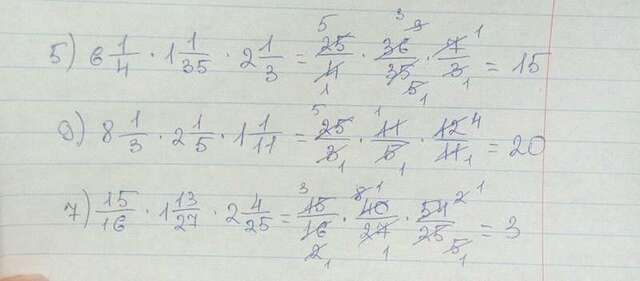 5) 6 1/4 · 1 1/35 · 2 1/3 = 25/4 · 36/35 · 7/3 = 15
9) 8 1/3 · 2 1/5 · 1 1/11 = 25/3 · 11/5 · 12/11 = 20
7) 15/16 · 1 13/27 · 2 4/25 = 15/16 · 40/27 · 54/25 = 3